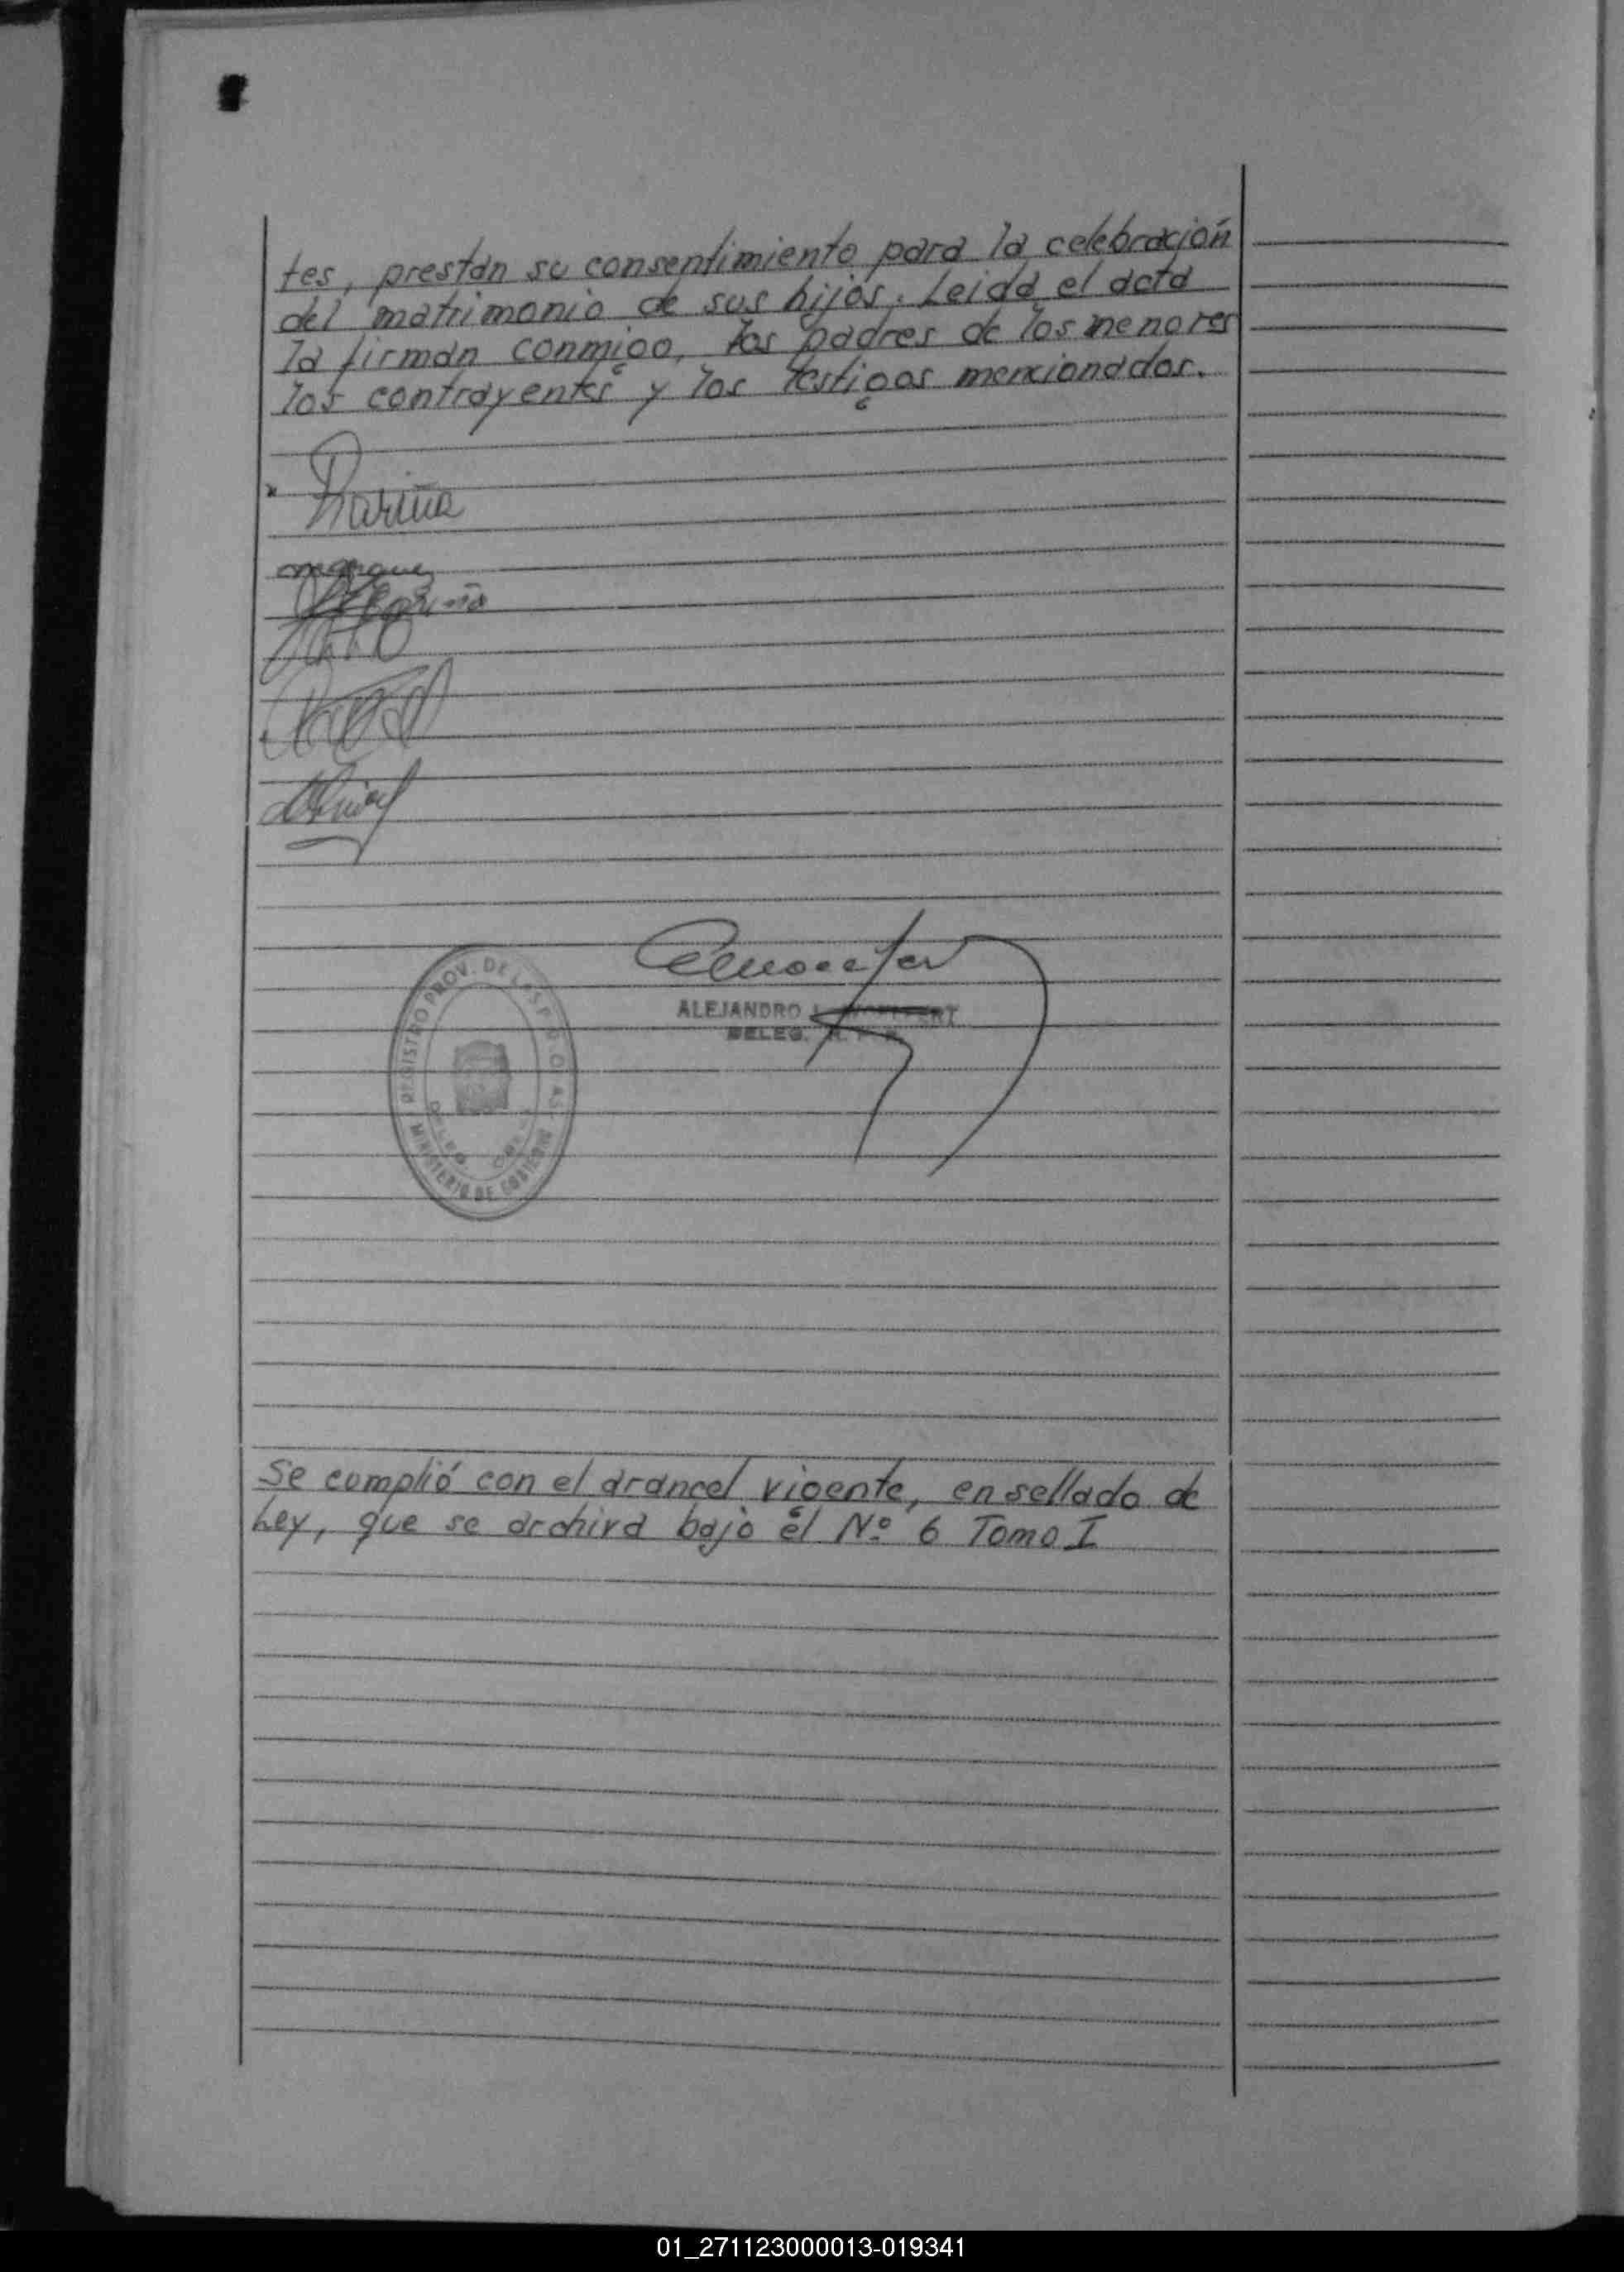 tes, prestan su consentimiento para la celebración
del matrimonio de sus hijos. Leida el acta
la firman conmigo, los padres de los menores
los contrayentes y los testigos mencionados.
ALEJANDRO
DELEG.
REGISTRO PROV. DE LAS P
MINISTERIO DE GOBIERNO
Se cumplió con el arancel vigente, en sellado de
Ley, que se archiva bajo el Nº 6 Tomo I
01_271123000013-019341